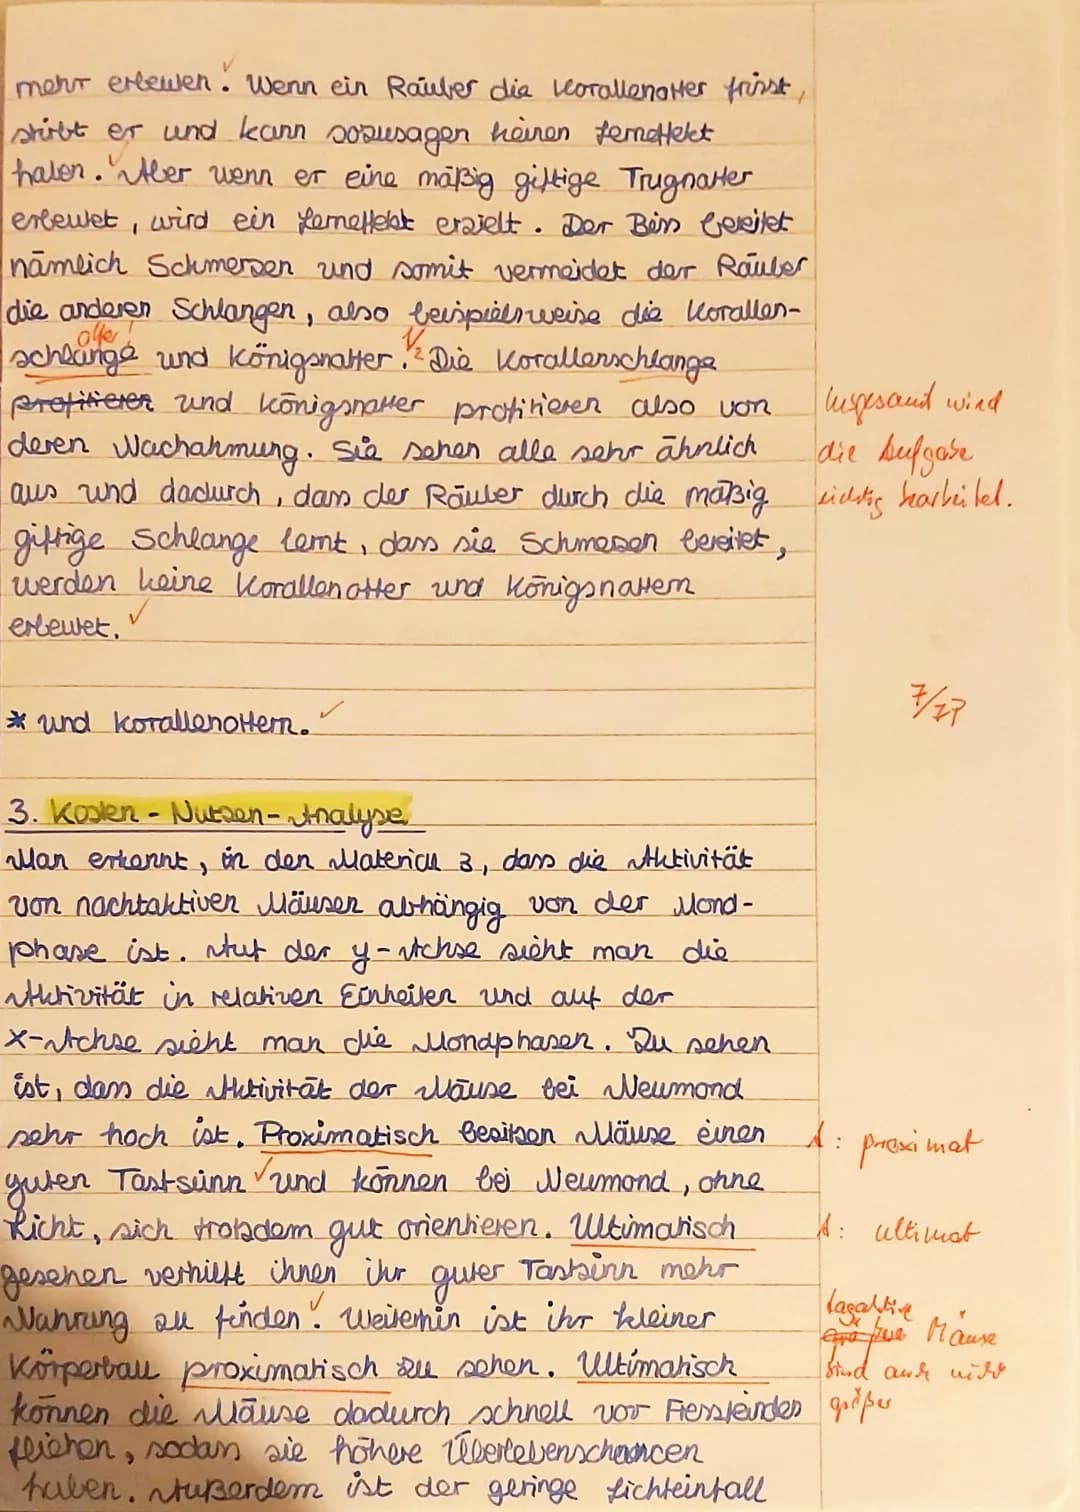 mehr erbeuten. Wenn ein Räuber die Korallenotter frisst,
stirbt er und kann sozusagen keinen Lerneffekt
haben. Aber wenn er eine mäßig giftige Trugnatter
erbeutet, wird ein Lerneffekt erzielt. Der Biss bereitet
nämlich Schmerzen und somit vermeidet der Räuber
die anderen Schlangen, also beispielsweise die Korallen-
otter!
schlange und Königsnatter. 1/2 Die Korallenschlange
profitieren und Königsnatter profitieren also von
Insgesamt wird
deren Nachahmung. Sie sehen alle sehr ähnlich
die Aufgabe
aus und dadurch, dass der Räuber durch die mäßig
richtig bearbeitet.
giftige Schlange lernt, dass sie Schmezen bereitet,
werden keine Korallenotter und Königsnattern
erbeutet.
7/7P
* und Korallenottern.
3. Kosten-Nutzen-Analyse
Man erkennt, in den Material 3, dass die Aktivität
von nachtaktiven Mäusen abhängig von der Mond-
phase ist. Auf der y-Achse sieht man die
Aktivität in relativen Einheiten und auf der
x-Achse sieht man die Mondphasen. Zu sehen
ist, dass die Aktivität der Mäuse bei Neumond
sehr hoch ist. Proximatisch besitzen Mäuse einen
A: proximat
guten Tastsinn und können bei Neumond, ohne
Licht, sich trotzdem gut orientieren. Ultimatisch
A: ultimat
gesehen verhilft ihnen ihr guter Tastsinn mehr
Nahrung zu finden. Weiterhin ist ihr kleiner
tagaktive
Mäuse
Körperbau proximatisch zu sehen. Ultimatisch
sind auch nicht
können die Mäuse dadurch schnell vor Fressfeinden
größer
fliehen, sodass sie höhere Überlebenschancen
haben. Außerdem ist der geringe Lichteinfall